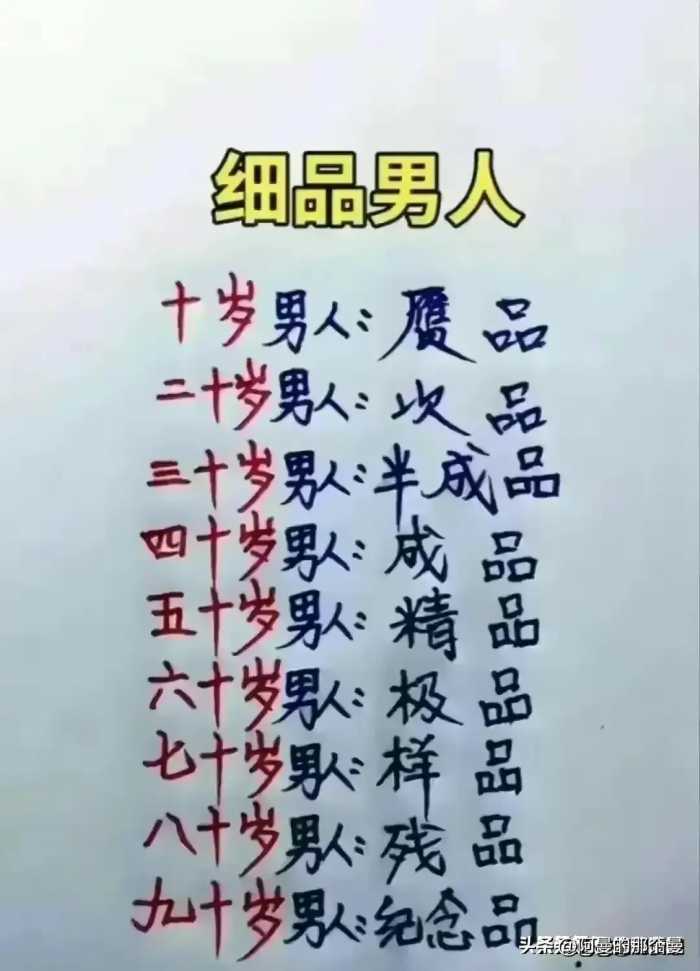 细品男人
十岁男人：赝品
二十岁男人：次品
三十岁男人：半成品
四十岁男人：成品
五十岁男人：精品
六十岁男人：极品
七十岁男人：样品
八十岁男人：残品
九十岁男人：纪念品
头条 @阿曼的那个曼